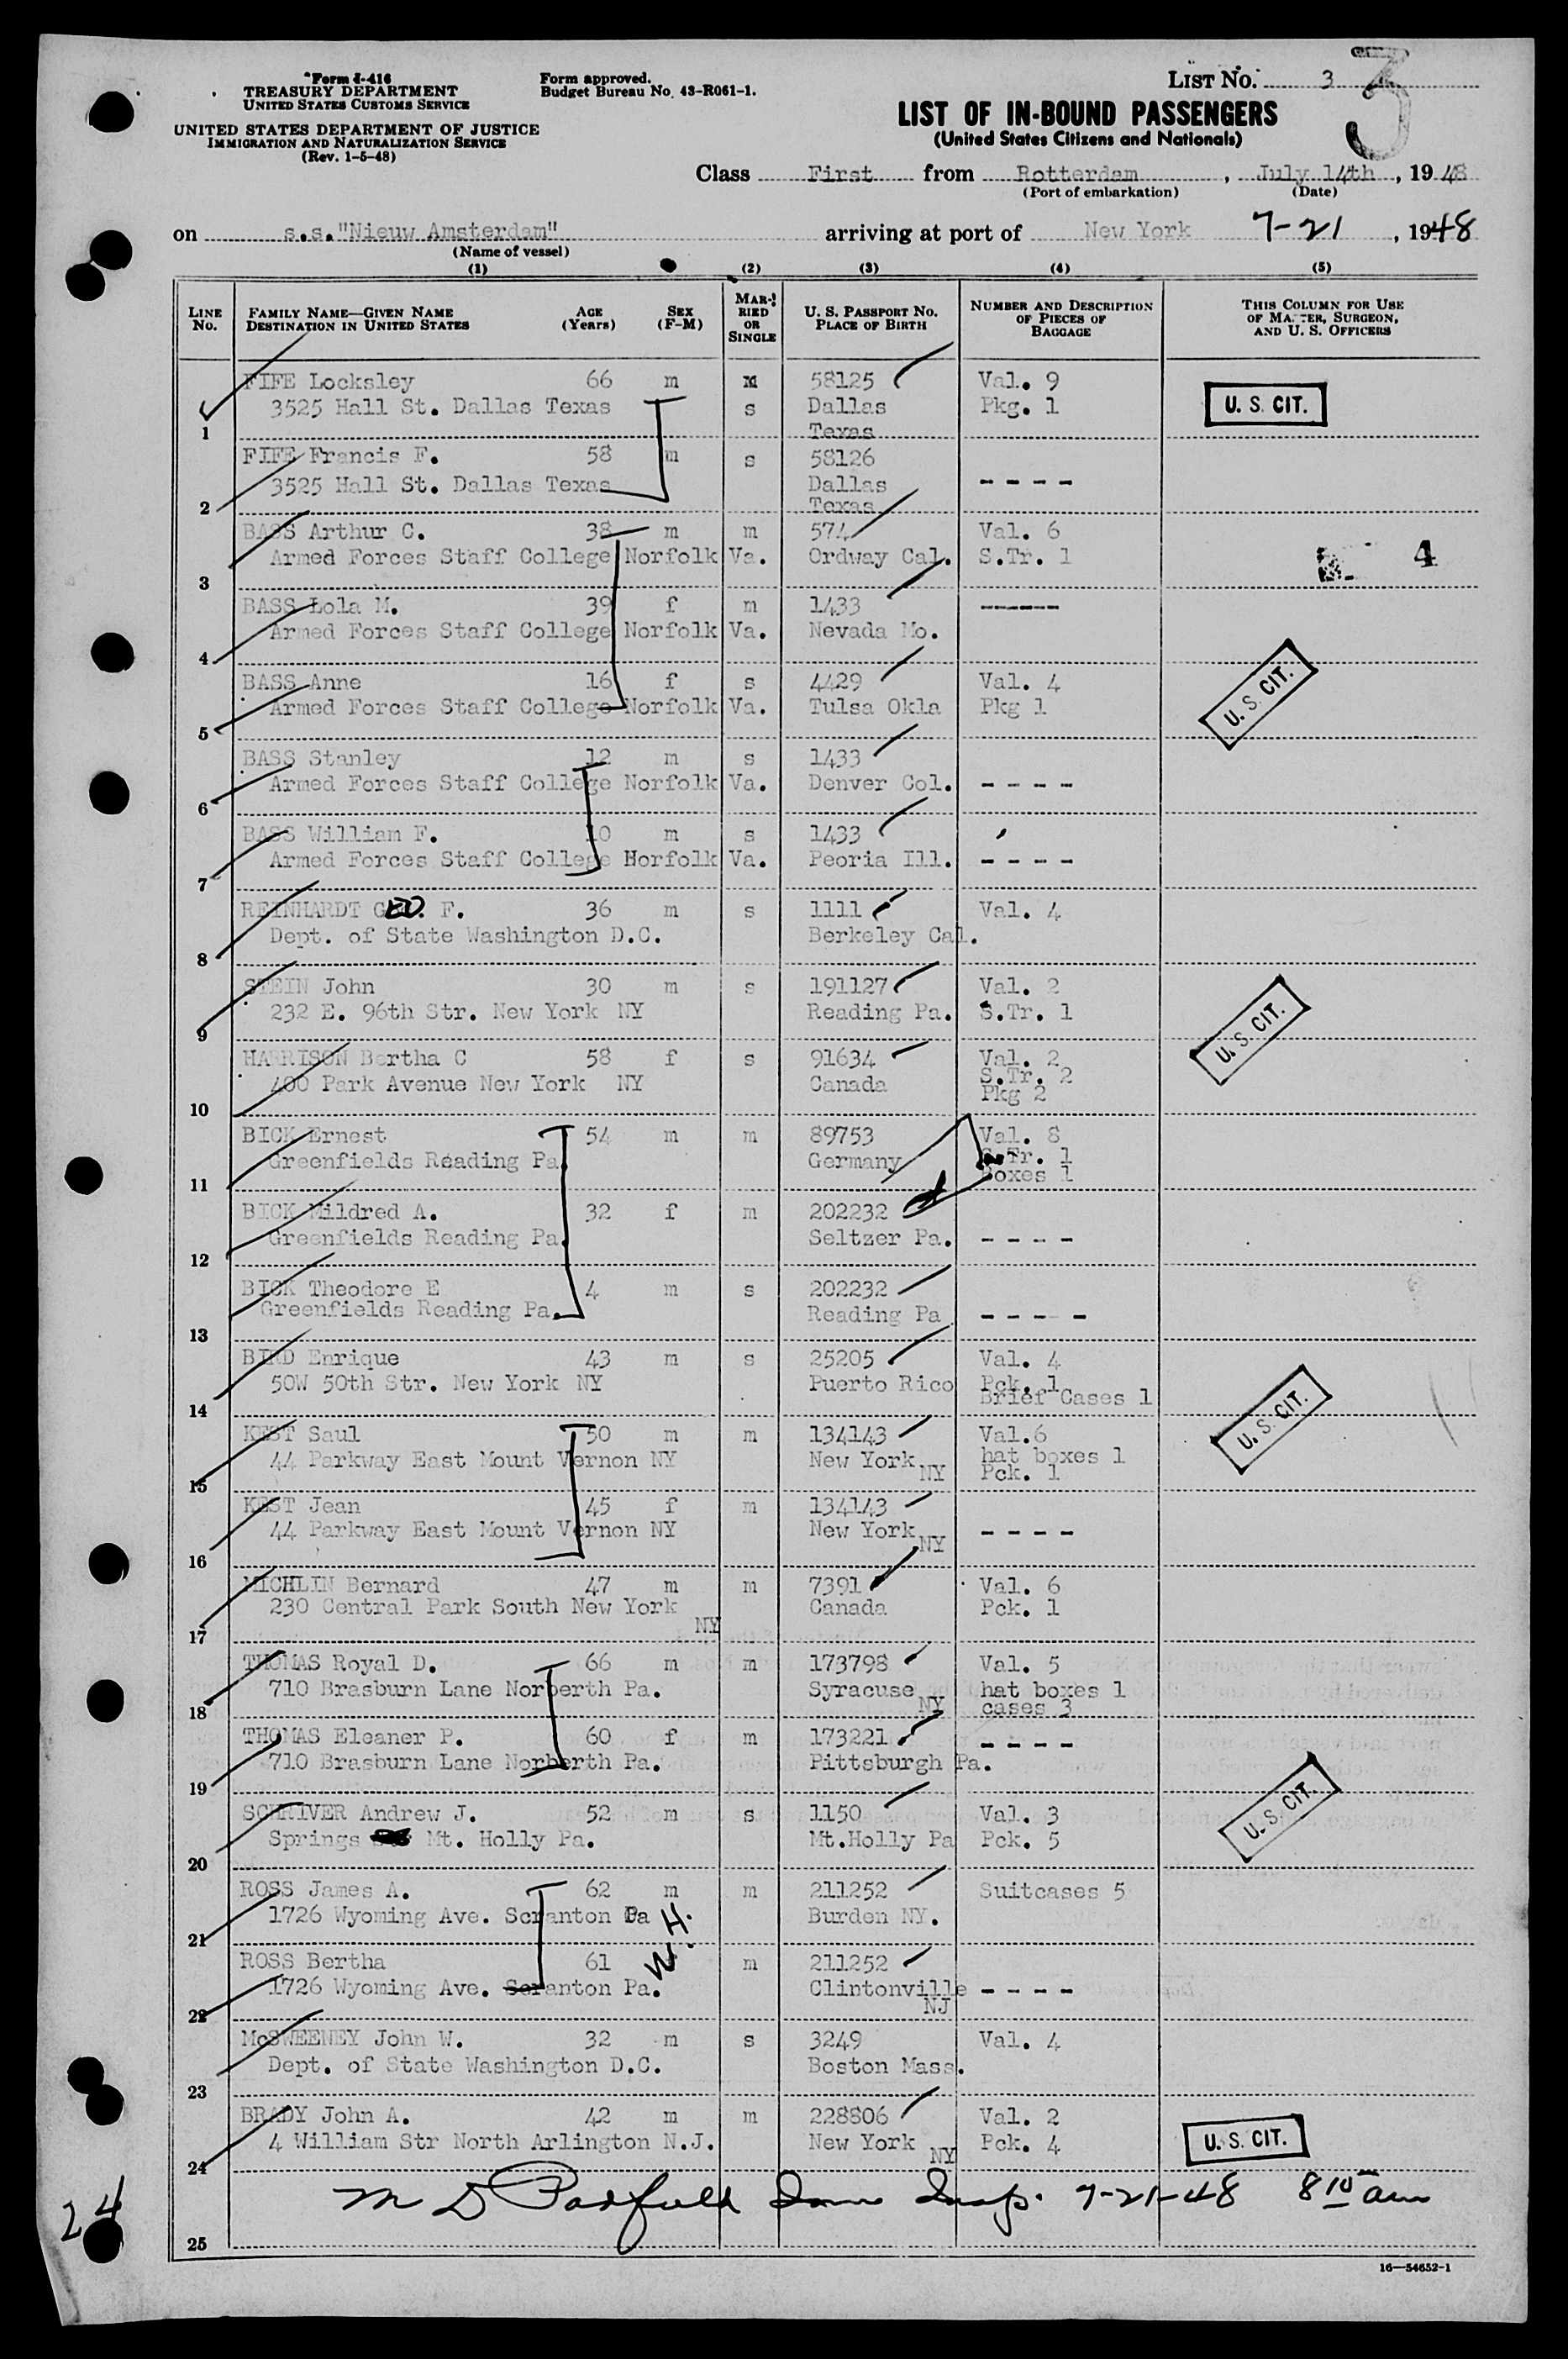 Form I-416
TREASURY DEPARTMENT
UNITED STATES CUSTOMS SERVICE
UNITED STATES DEPARTMENT OF JUSTICE
IMMIGRATION AND NATURALIZATION SERVICE
(Rev. 1-5-48)
Form approved.
Budget Bureau No. 43-R061-1.
LIST NO. 3
3
LIST OF IN-BOUND PASSENGERS
(United States Citizens and Nationals)
Class First from Rotterdam, July 14th, 1948
(Port of embarkation) (Date)
on s.s."Nieuw Amsterdam" arriving at port of New York 7-21, 1948
(Name of vessel)
(1) (2) (3) (4) (5)
LINE No. FAMILY NAME—GIVEN NAME DESTINATION IN UNITED STATES AGE (Years) SEX (F-M) MARRIED OR SINGLE U. S. PASSPORT No. PLACE OF BIRTH NUMBER AND DESCRIPTION OF PIECES OF BAGGAGE THIS COLUMN FOR USE OF MASTER, SURGEON, AND U. S. OFFICERS
FIFE Locksley 66 m 58125 Val. 9
3525 Hall St. Dallas Texas s Dallas Pkg. 1 U. S. CIT.
1 Texas
FIFE Francis F. 58 m s 58126
3525 Hall St. Dallas Texas Dallas - - - -
2 Texas
BASS Arthur C. 38 m m 574 Val. 6
Armed Forces Staff College Norfolk Va. Ordway Cal. S.Tr. 1 4
3
BASS Lola M. 39 f m 1433 -----
Armed Forces Staff College Norfolk Va. Nevada Mo.
4
BASS Anne 16 f s 4429 Val. 4
Armed Forces Staff College Norfolk Va. Tulsa Okla Pkg 1 U. S. CIT.
5
BASS Stanley 12 m s 1433
Armed Forces Staff College Norfolk Va. Denver Col. - - - -
6
BASS William F. 10 m s 1433
Armed Forces Staff College Horfolk Va. Peoria Ill. - - - -
7
REINHARDT GEO. F. 36 m s 1111 Val. 4
Dept. of State Washington D.C. Berkeley Cal.
8
STEIN John 30 m s 191127 Val. 2
232 E. 96th Str. New York NY Reading Pa. S.Tr. 1 U. S. CIT.
9
HARRISON Bertha C 58 f s 91634 Val. 2
400 Park Avenue New York NY Canada S.Tr. 2
10 Pkg 2
BICK Ernest 54 m m 89753 Val. 8
Greenfields Reading Pa. Germany S.Tr. 1
11 Boxes 1
BICK Mildred A. 32 f m 202232
Greenfields Reading Pa. Seltzer Pa. - - - -
12
BICK Theodore E 4 m s 202232
Greenfields Reading Pa. Reading Pa - - - -
13
BIRD Enrique 43 m s 25205 Val. 4
50W 50th Str. New York NY Puerto Rico Pck. 1
14 Brief Cases 1 U. S. CIT.
KEST Saul 50 m m 134143 Val.6
44 Parkway East Mount Vernon NY New York NY hat boxes 1
15 Pck. 1
KEST Jean 45 f m 134143
44 Parkway East Mount Vernon NY New York NY - - - -
16
MICHLIN Bernard 47 m m 7391 Val. 6
230 Central Park South New York NY Canada Pck. 1
17
THOMAS Royal D. 66 m m 173798 Val. 5
710 Brasburn Lane Norberth Pa. Syracuse NY hat boxes 1
18 cases 3
THOMAS Eleaner P. 60 f m 173221 - - - -
710 Brasburn Lane Norberth Pa. Pittsburgh Pa.
19
SCHRIVER Andrew J. 52 m s 1150 Val. 3
Springs Mt. Holly Pa. Mt.Holly Pa Pck. 5 U. S. CIT.
20
ROSS James A. 62 m m 211252 Suitcases 5
1726 Wyoming Ave. Scranton Pa Burden NY.
21 W.H.
ROSS Bertha 61 m 211252
1726 Wyoming Ave. Scranton Pa. Clintonville NJ - - - -
22
McSWEENEY John W. 32 m s 3249 Val. 4
Dept. of State Washington D.C. Boston Mass.
23
BRADY John A. 42 m m 228806 Val. 2
4 William Str North Arlington N.J. New York NY Pck. 4 U. S. CIT.
24
M D Padfield Imm Insp. 7-21-48 8 10 am
24
25
16—54652-1